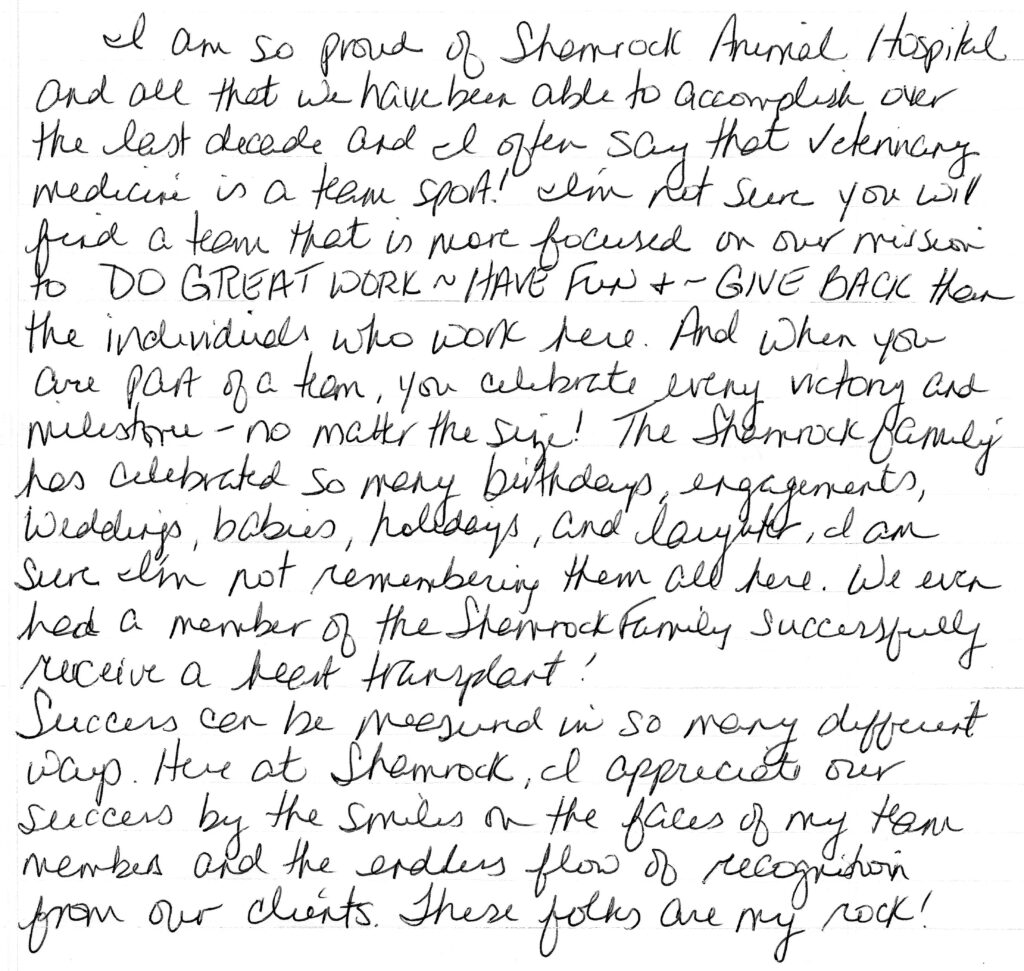 I am so proud of Shamrock Animal Hospital
and all that we have been able to accomplish over
the last decade and I often say that veterinary
medicine is a team sport! I'm not sure you will
find a team that is more focused on our mission
to DO GREAT WORK ~ HAVE FUN + ~ GIVE BACK than
the individuals who work here. And when you
are part of a team, you celebrate every victory and
milestone - no matter the size! The Shamrock family
has celebrated so many birthdays, engagements,
weddings, babies, holidays, and laughter, I am
sure I'm not remembering them all here. We even
had a member of the Shamrock Family successfully
receive a heart transplant!
Success can be measured in so many different
ways. Here at Shamrock, I appreciate our
success by the smiles on the faces of my team
members and the endless flow of recognition
from our clients. These folks are my rock!